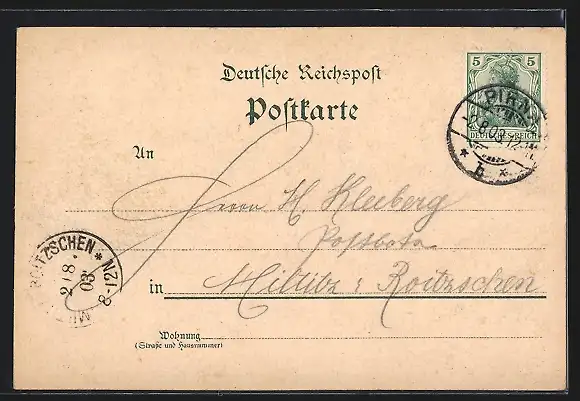 Deutsche Reichspost
Postkarte
5 5
DEUTSCHES REICH
PIRN
2.8.03.12
* b *
An
Herrn H. Kleeberg
Postbote
in Miltitz : Roitzschen
ROITZSCHEN *
2/8
03
8-12N
Wohnung
(Straße und Hausnummer)